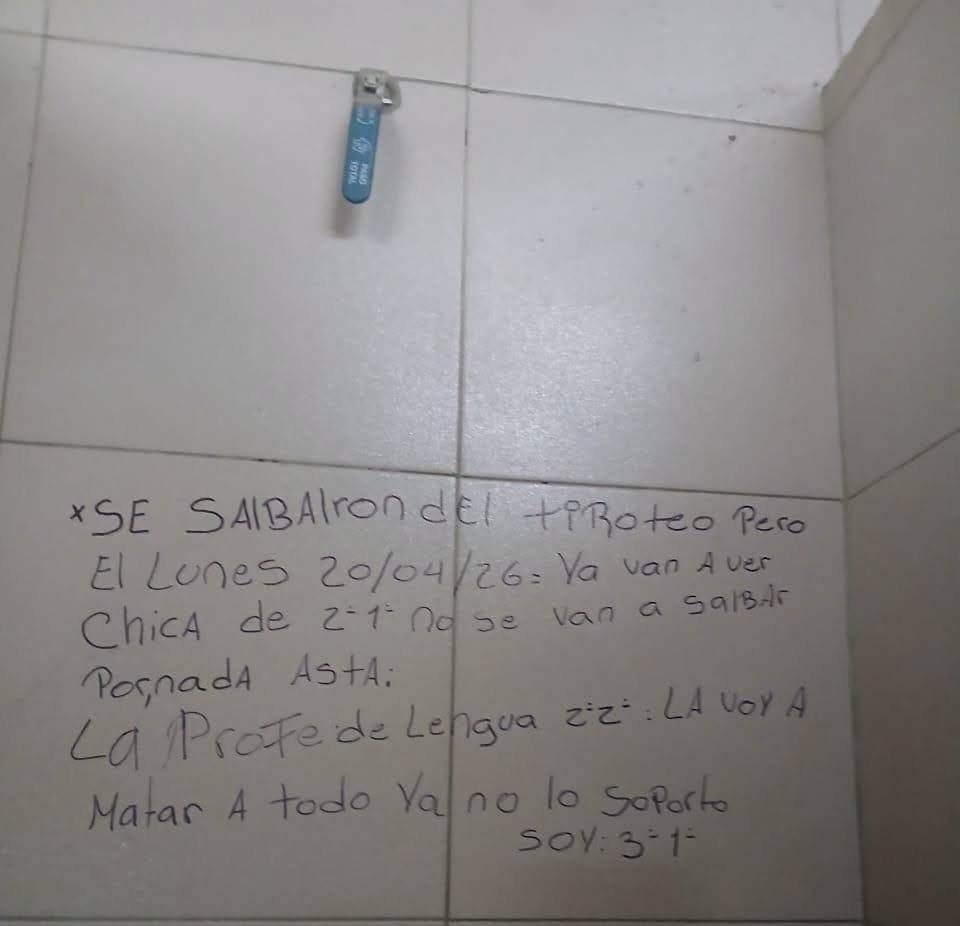 PASO TOTAL
*SE SAlBAlron dEl tiRoteo Pero
El Lunes 20/04/26: Ya van A ver
ChicA de 2-1- no se van a salBAr
Por,nadA AstA:
La Profe de Lengua 2-2-: LA voy A
Matar A todo Ya no lo soporto
SOY: 3-1-